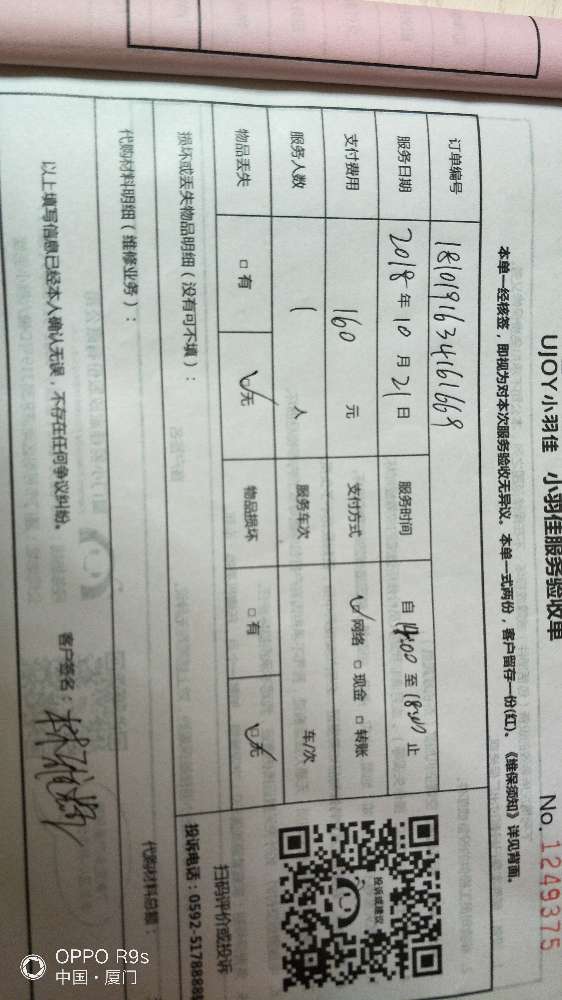 UJOY小羽佳 小羽佳服务验收单
No. 1249375
本单一经核签，即视为对本次服务验收无异议。本单一式两份，客户留存一份(红)。《维保须知》详见背面。
订单编号 1810191634161669
服务日期 2018年10月21日 服务时间 自14:00至18:00止
支付费用 160元 支付方式 ☑网络 □现金 □转账
服务人数 1人 服务车次 车/次
物品丢失 □有 ☑无 物品损坏 □有 ☑无
损坏或丢失物品明细（没有可不填）：
代购材料明细（维修业务）：
代购材料总额：
投诉或建议
扫码评价或投诉
投诉电话：0592-5178888
以上填写信息已经本人确认无误，不存在任何争议纠纷。 客户签名：
OPPO R9s
中国·厦门